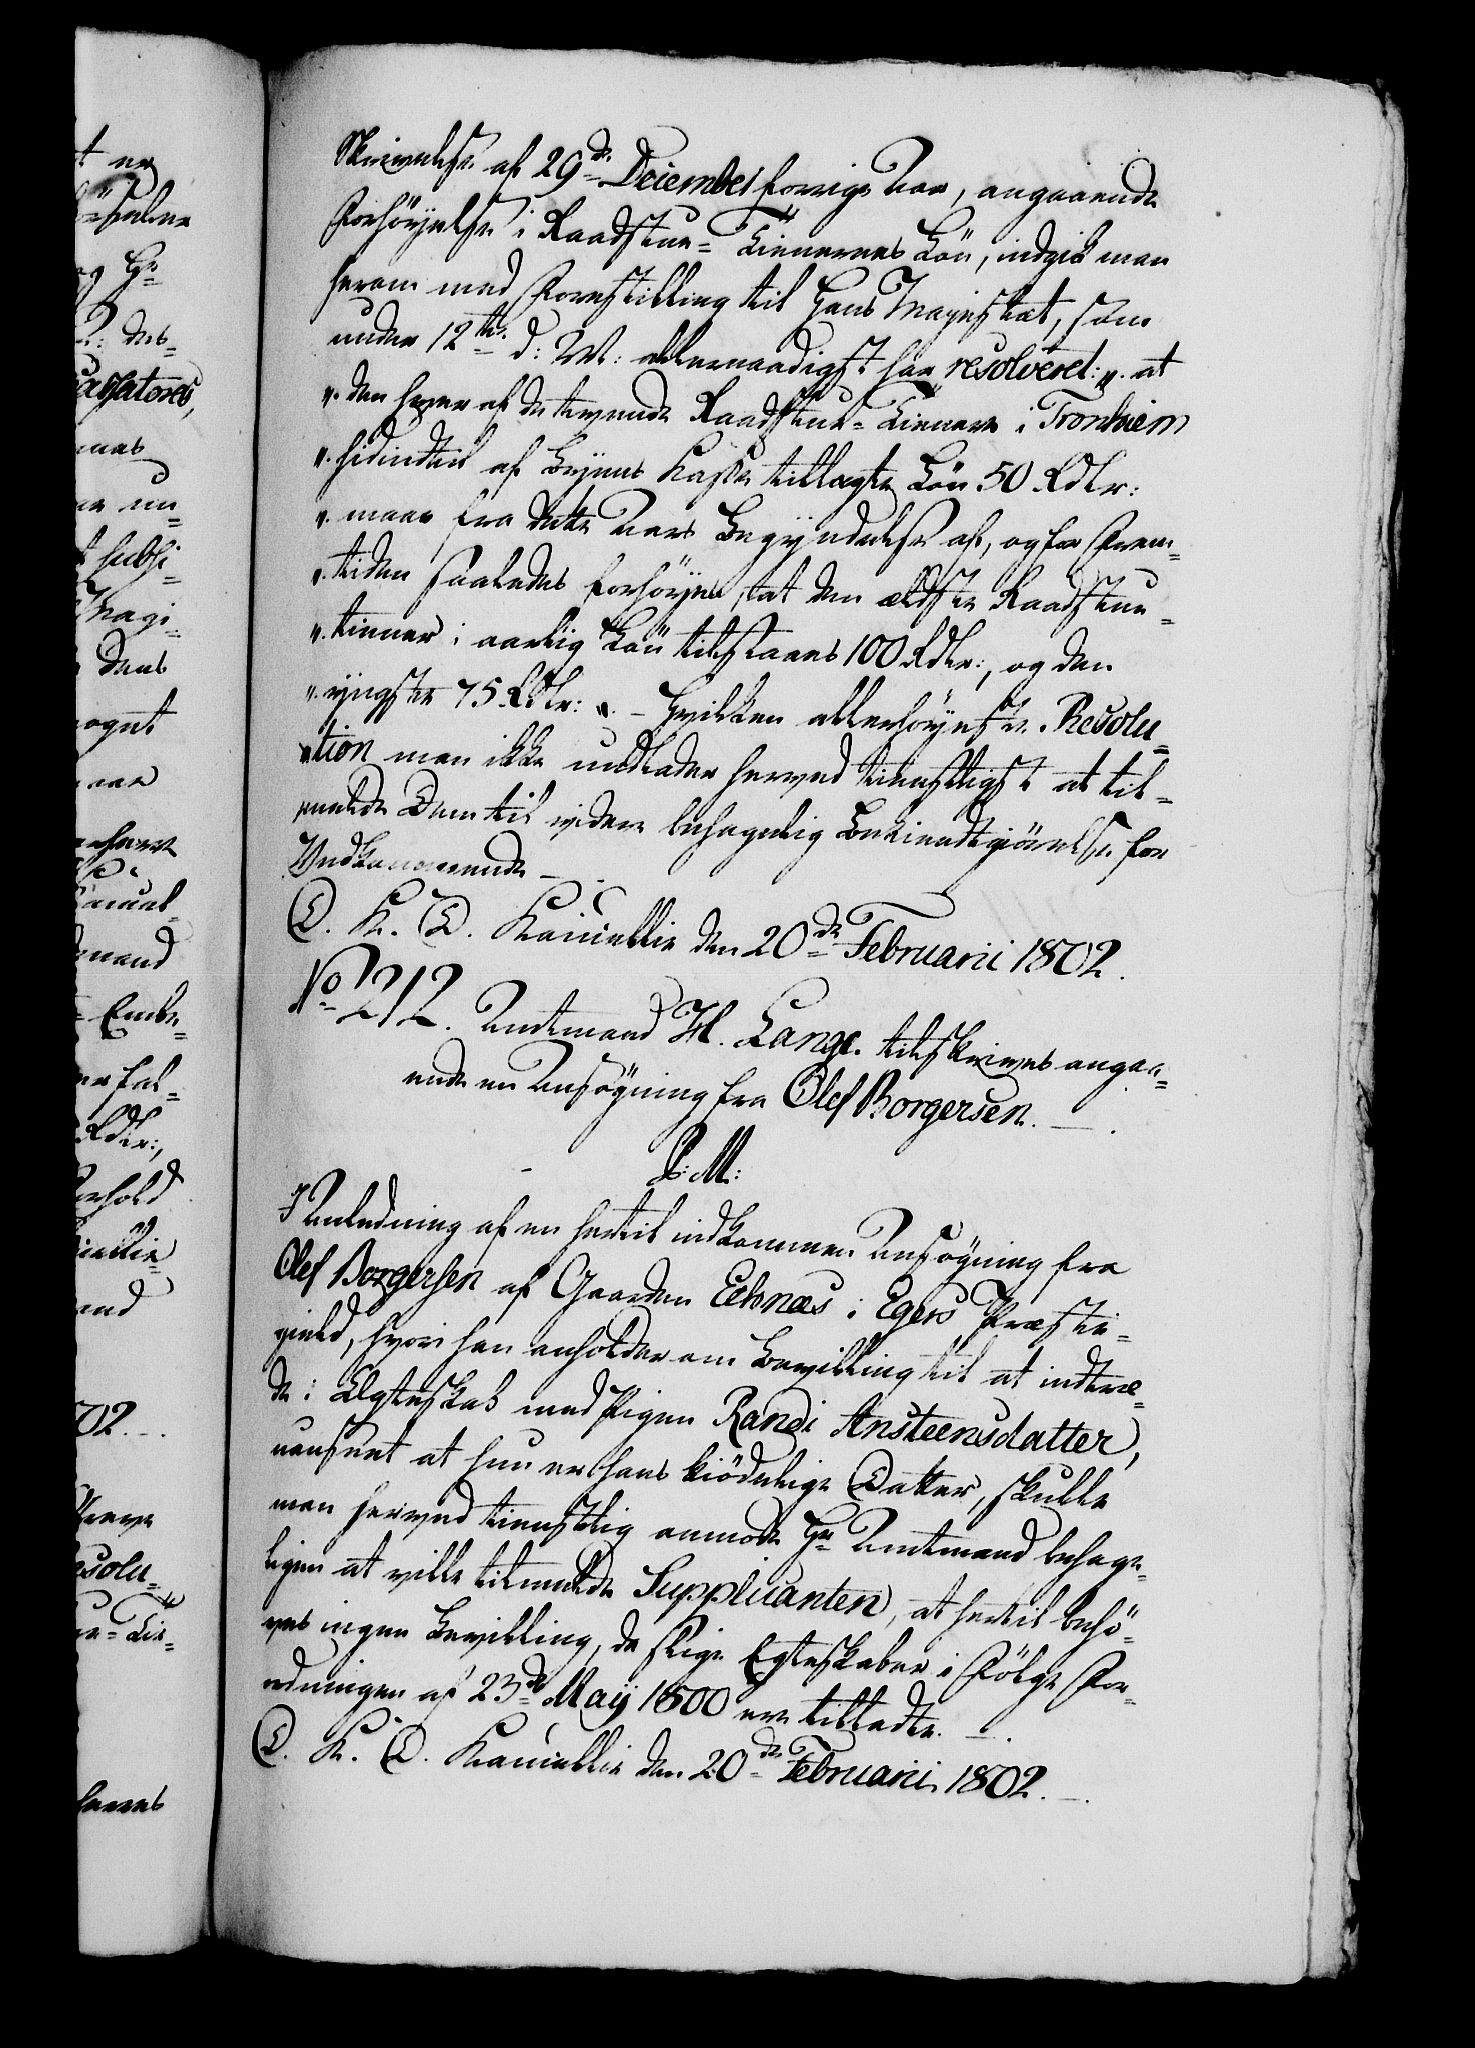 Skrivelse af 29de December forrige Aar, angaaende
Forhöyelse i Raadstue- Tienernes Lön, indgik man
herom med Forestilling til Hans Majestæt, som
under 12te d: M: allernaadigst har resolveret: „at
„den hver af de tvende Raadstue-Tienere i Tronhiem
„hidindtil af Byens Kasse tillagte Lön 50 Rdlr:
„maae fra dette Aars Begyndelse af, og for Frem-
„tiden saaledes forhöyes, at den ældste Raadstue-
„tiener i aarlig Lön tilstaaes 100 Rdlr:, og den
„yngste 75 Rdlr: „ - Hvilken allerhöyeste Resolu-
„tion man ikke undlader herved tienstligst at til-
melde Dem til videre behagelig Bekiendtgiörelse for
Vedkommende - .
D. K. D. Kancellie den 20de Februarii 1802.
No 212. Amtmand H. Lange tilskrives angaa-
ende en Ansögning fra Olef Borgersen. - .
P: M:
I Anledning af en hertil indkommen Ansögning fra
Olef Borgersen af Gaarden Eeknæs i Egers Præste-
gield, hvori han anholder om Bevilling til at indtræ-
de i Ægteskab med Pigen Randi Ansteensdatter,
uanseet at hun er hans kiödelige Datter, skulle
man herved tienstlig anmode Hr Amtmand behage-
ligen at ville tilmelde Supplicanten, at hertil behö-
ves ingen Bevilling, da slige Egteskaber i Fölge For-
ordningen af 23de Maij 1800 ere tilladte. - .
D. K. D. Kancellie den 20de Februarii 1802. - .